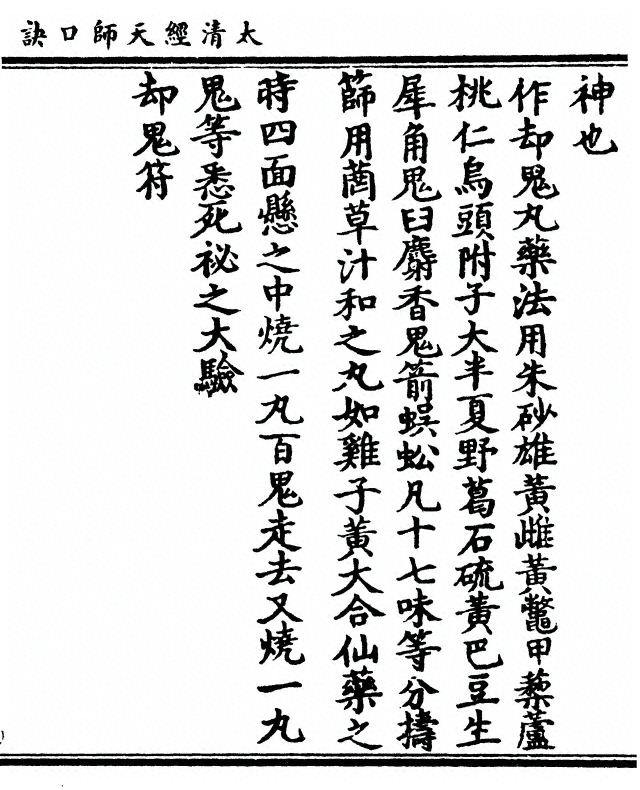 太清經天師口訣
神也
作却鬼丸藥法用朱砂雄黃雌黃鼈甲藜蘆
桃仁烏頭附子大半夏野葛石硫黃巴豆生
犀角鬼臼麝香鬼箭蜈蚣凡十七味等分擣
篩用菵草汁和之丸如雞子黃大合仙藥之
時四面懸之中燒一丸百鬼走去又燒一丸
鬼等悉死祕之大驗
却鬼符